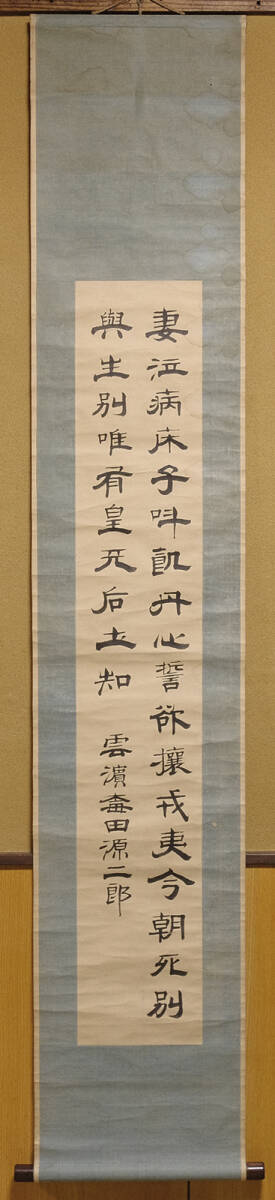 妻泣病床子叫飢丹心誓欲攘戎夷今朝死別
與生別唯有皇天后土知　雲濱梅田源二郎